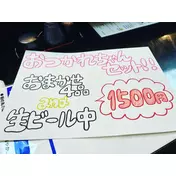 おつかれちゃん
セット!!
おまかせ
4品
1500円
生ビール中